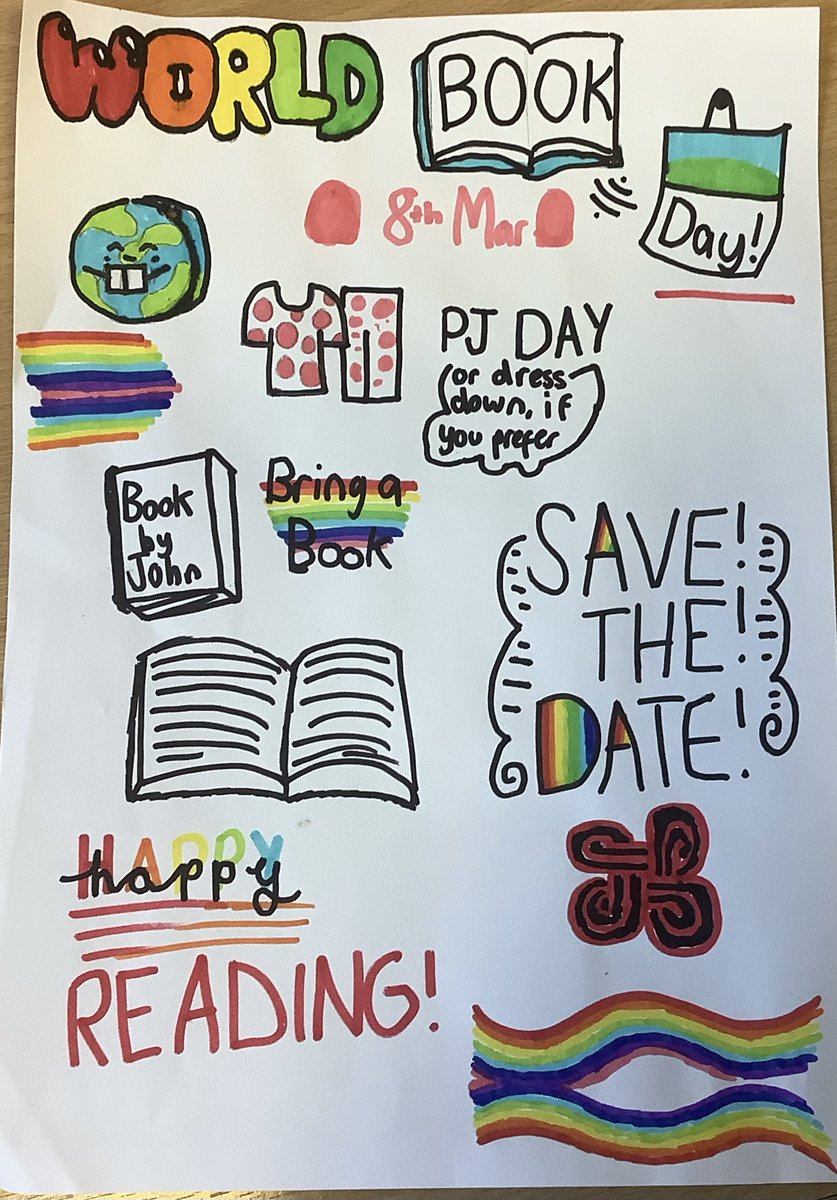 WORLD BOOK
Day!
8th Mar
PJ DAY
or dress
down, if
you prefer
Book
by
John
Bring a
Book
SAVE!
THE!
DATE!
HAPPY
happy
READING!